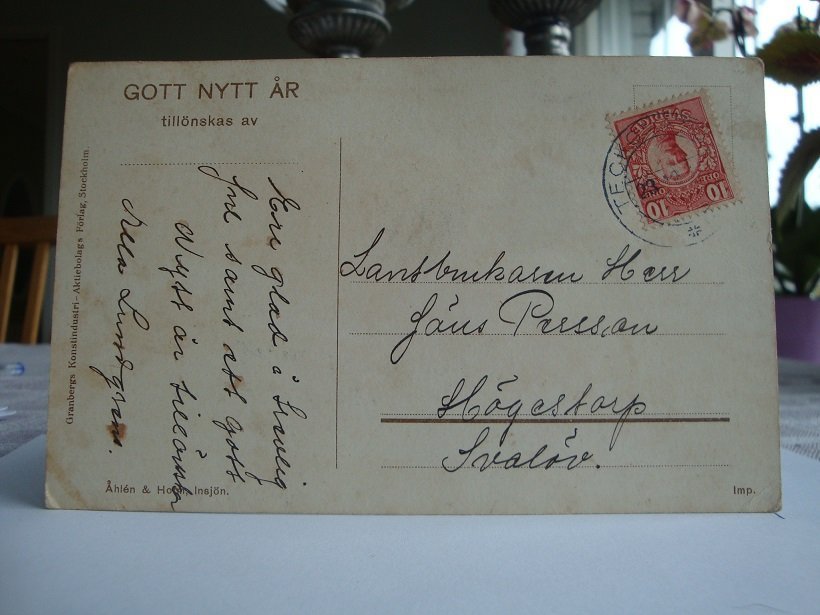 GOTT NYTT ÅR
tillönskas av
Granbergs Konstindustri-Aktiebolags Förlag, Stockholm.
glad i
Jul samt ett gott
Nytt år tillönskar
Lundgren.
Lantbrukaren Herr
Jöns Persson
Högestorp
Svalöv.
10 10
Åhlén & Holm, Insjön.
Imp.